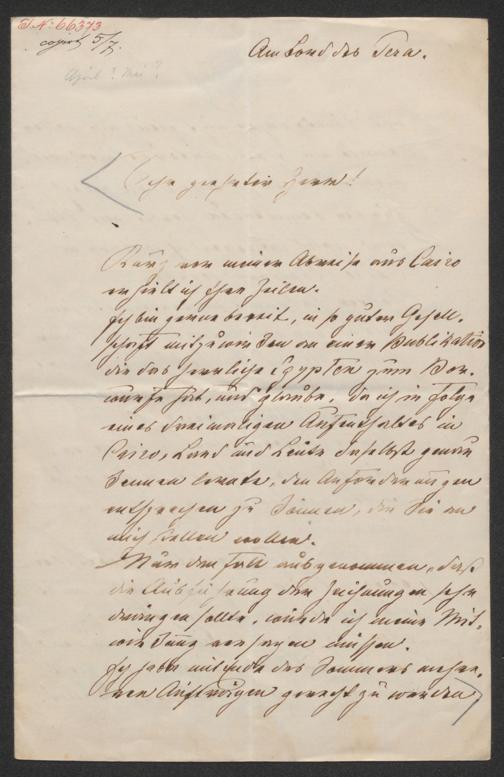 I. N: 66373
copiert 5/7.
April? Mai?
Am Bord des Tera.
Sehr geehrter Herr!
Kurz vor meiner Abreise aus Cairo
erhielt ich Ihre Zeilen.
Ich bin gerne bereit, in so guter Gesell-
schaft mitzuwirken an einer Publikation
die das herrliche Egypten zum Vor-
wurfe hat, und glaube, da ich in Folge
eines dreimaligen Aufenthaltes in
Cairo, Land und Leute daselbst genau
kennen lernte, den Anforderungen
entsprechen zu können, die Sie an
mich stellen wollen.
Nur den Fall ausgenommen, daß
die Ausführung der Zeichnungen sehr
drängen sollte, würde ich meine Mit-
wirkung versagen müssen.
Ich habe mit Ende des Sommers mehre-
ren Aufträgen gerecht zu werden